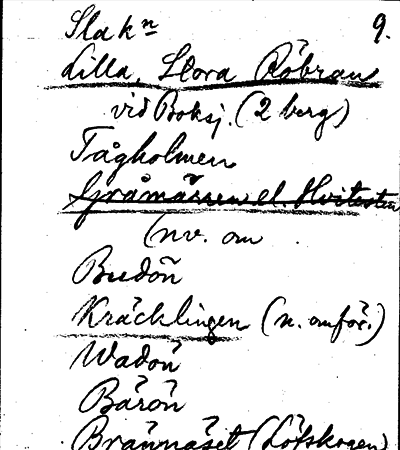 Slak<sup>n</sup> 9.
Lilla, Stora Råbrau
vid Boksj. (2 berg)
Tågholmen
Gråmåssen el. Hvitesten
(nv. om
Budön
Kräcklingen (n. omför.)
Wadön
Bärön
Brännäset (Löfskogen)